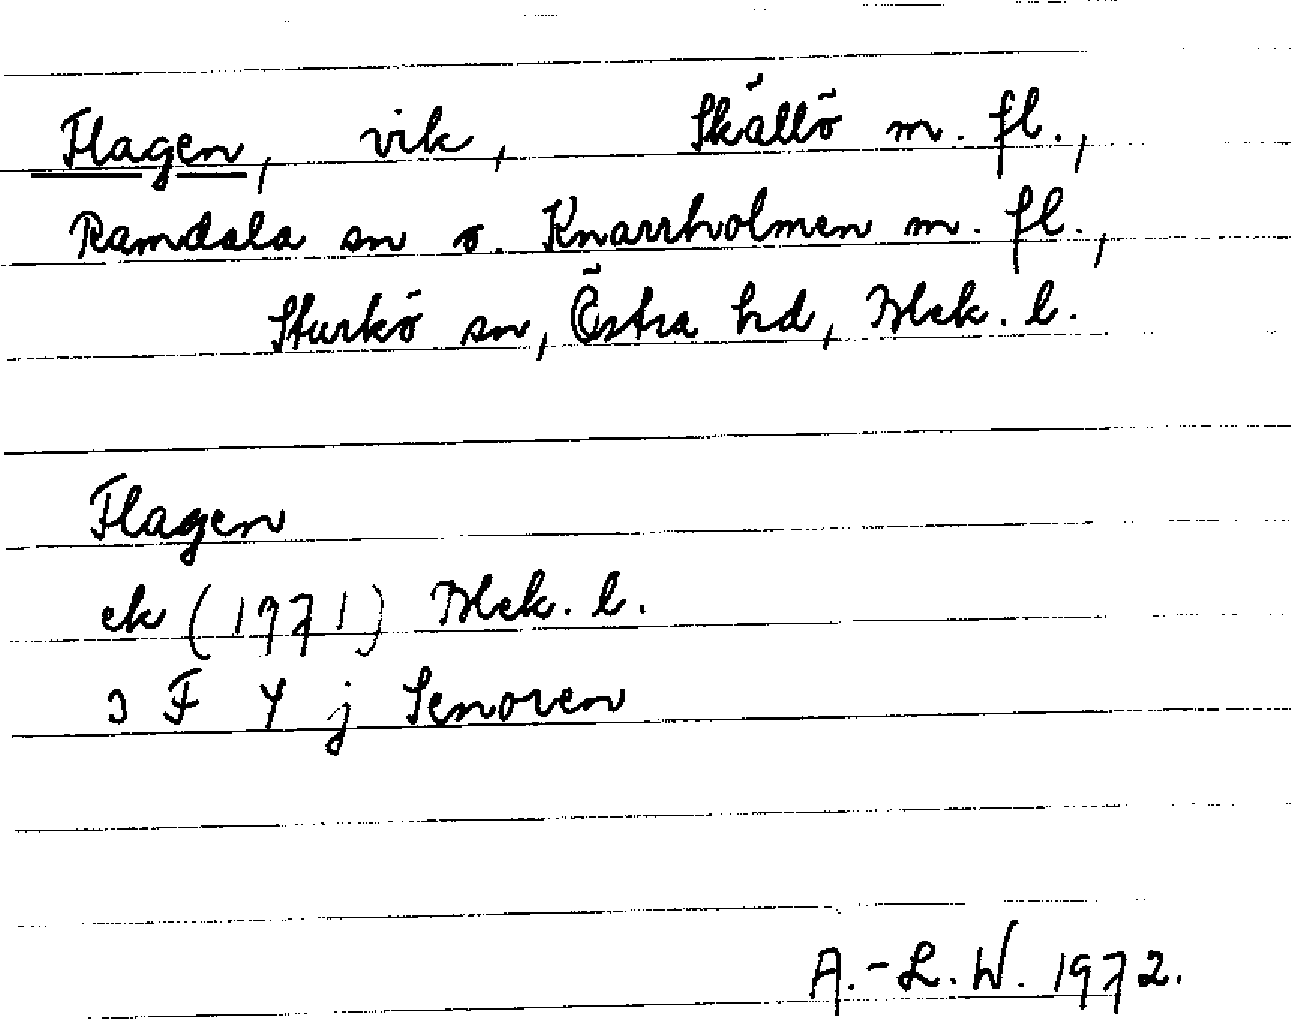 Flagen, vik, Skällö m. fl.,
Ramdala sn o. Knarrholmen m. fl.,
Sturkö sn, Östra hd, Blek. l.
Flagen
ek (1971) Blek. l.
3 F Y j Senoren
A.-L. W. 1972.